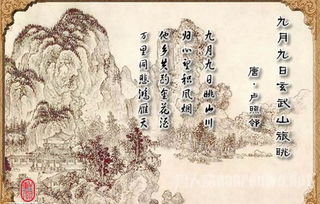 九月九日玄武山旅眺
唐·卢照邻
九月九日眺山川
归心归望积风烟
他乡共酌金花酒
万里同悲鸿雁天